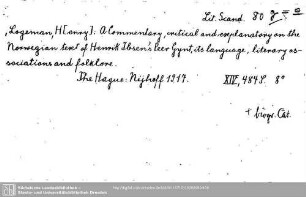 Lit. Scand. 80
Logeman, H[enry]: A Commentary, critical and explanatory on the
Norwegian text of Henrik Ibsen's Peer Gynt, its language, literary as-
sociations and folklore.
The Hague: Nijhoff 1917. XIV, 484 S. 8°
+ biogr. Cat.
Sächsische Landesbibliothek -
Staats- und Universitätsbibliothek Dresden